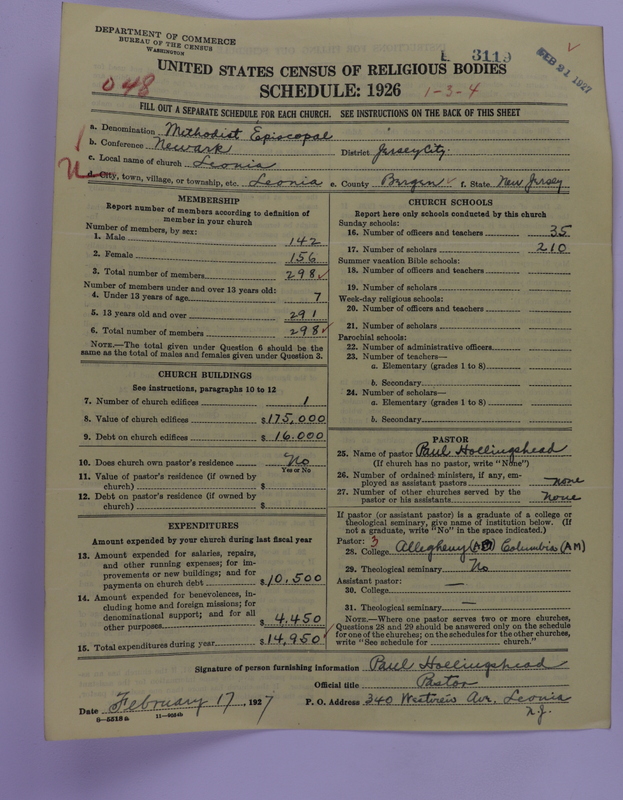 DEPARTMENT OF COMMERCE
BUREAU OF THE CENSUS
WASHINGTON
E 3119
FEB 21 1927
UNITED STATES CENSUS OF RELIGIOUS BODIES
048
SCHEDULE: 1926
1-3-4
FILL OUT A SEPARATE SCHEDULE FOR EACH CHURCH. SEE INSTRUCTIONS ON THE BACK OF THIS SHEET
a. Denomination Methodist Episcopal
b. Conference Newark District Jersey City.
c. Local name of church Leonia
d. City, town, village, or township, etc. Leonia e. County Bergen f. State New Jersey
MEMBERSHIP
Report number of members according to definition of
member in your church
Number of members, by sex:
1. Male 142
2. Female 156
3. Total number of members 298
Number of members under and over 13 years old:
4. Under 13 years of age 7
5. 13 years old and over 291
6. Total number of members 298
NOTE.—The total given under Question 6 should be the
same as the total of males and females given under Question 3.
CHURCH BUILDINGS
See instructions, paragraphs 10 to 12
7. Number of church edifices 1
8. Value of church edifices $175,000
9. Debt on church edifices $ 16.000
10. Does church own pastor's residence No
Yes or No
11. Value of pastor's residence (if owned by
church) $
12. Debt on pastor's residence (if owned by
church) $
EXPENDITURES
Amount expended by your church during last fiscal year
13. Amount expended for salaries, repairs,
and other running expenses; for im-
provements or new buildings; and for
payments on church debt $10,500
14. Amount expended for benevolences, in-
cluding home and foreign missions; for
denominational support; and for all
other purposes $ 4,450
15. Total expenditures during year $14,950
CHURCH SCHOOLS
Report here only schools conducted by this church
Sunday schools:
16. Number of officers and teachers 35
17. Number of scholars 210
Summer vacation Bible schools:
18. Number of officers and teachers
19. Number of scholars
Week-day religious schools:
20. Number of officers and teachers
21. Number of scholars
Parochial schools:
22. Number of administrative officers
23. Number of teachers—
a. Elementary (grades 1 to 8)
b. Secondary
24. Number of scholars—
a. Elementary (grades 1 to 8)
b. Secondary
PASTOR
25. Name of pastor Paul Hollingshead
(If church has no pastor, write "None")
26. Number of ordained ministers, if any, em-
ployed as assistant pastors none
27. Number of other churches served by the
pastor or his assistants none
If pastor (or assistant pastor) is a graduate of a college or
theological seminary, give name of institution below. (If
not a graduate, write "No" in the space indicated.)
Pastor: 3
28. College Allegheny Columbia (AM)
29. Theological seminary No
Assistant pastor:
30. College —
31. Theological seminary —
NOTE.—Where one pastor serves two or more churches,
Questions 28 and 29 should be answered only on the schedule
for one of the churches; on the schedules for the other churches,
write "See schedule for church."
Signature of person furnishing information Paul Hollingshead
Official title Pastor
Date February 17, 1927 P. O. Address 340 Westview Ave, Leonia
N.J.